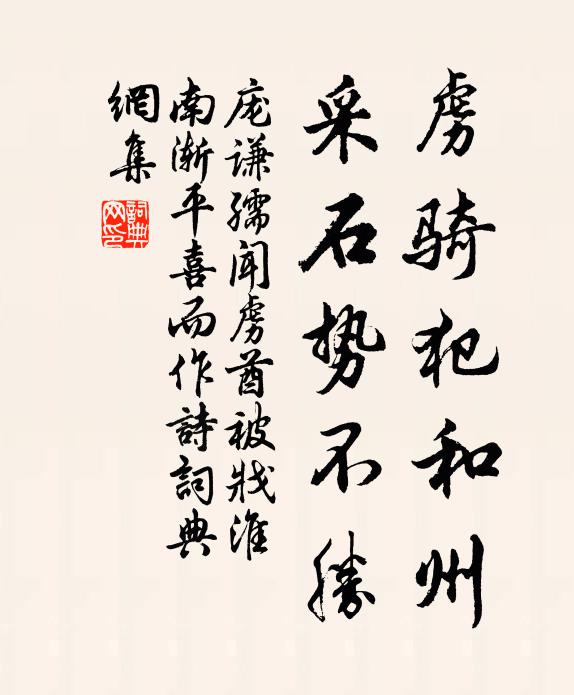 虏骑犯和州
采石势不勝
庞谦孺闻虏酋被戕淮
南渐平喜而作詩詞典
網集
詞典
网印